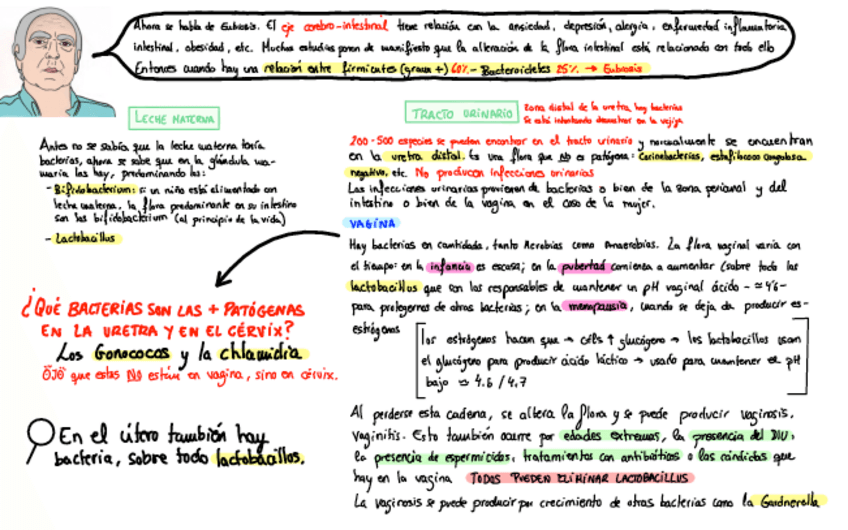 Ahora se habla de Eubiosis. El eje cerebro-intestinal tiene relación con la ansiedad, depresión, alergia, enfermedad inflamatoria
intestinal, obesidad, etc. Muchos estudios ponen de manifiesto que la alteración de la flora intestinal está relacionado con todo ello
Entonces cuando hay una relación entre firmicutes (gram +) 60% - Bacteroidetes 25% → Eubiosis
LECHE MATERNA
Antes no se sabía que la leche materna tenía
bacterias, ahora se sabe que en la glándula ma-
maria las hay, predominando las:
- Bifidobacterium: si un niño está alimentado con
leche materna, la flora predominante en su intestino
son las bifidobacterium (al principio de la vida)
- Lactobacillus
TRACTO URINARIO
Zona distal de la uretra hay bacterias
Se está intentando demostrar en la vejiga
200-500 especies se pueden encontrar en el tracto urinario y normalmente se encuentran
en la uretra distal. Es una flora que NO es patógena: Corinebacterias, estafilococo coagulasa
negativo, etc. No producen infecciones urinarias
Las infecciones urinarias provienen de bacterias o bien de la zona perianal y del
intestino o bien de la vagina en el caso de la mujer.
VAGINA
Hay bacterias en cantidada, tanto Aerobias como Anaerobias. La flora vaginal varía con
el tiempo: en la infancia es escasa; en la pubertad comienza a aumentar (sobre todo los
lactobacillus que son los responsables de mantener un pH vaginal ácido - ≈4'6 -
para protegernos de otras bacterias; en la menopausia, cuando se deja de producir es-
estrógenos
los estrógenos hacen que → céls ↑ glucógeno → los lactobacillos usan
el glucógeno para producir ácido láctico → usarlo para mantener el pH
bajo ≈ 4.6 / 4.7
Al perderse esta cadena, se altera la flora y se puede producir vaginosis,
vaginitis. Esto también ocurre por edades extremas, la presencia del DIU,
la presencia de espermicidas, tratamientos con antibióticos o las cándidas que
hay en la vagina TODOS PUEDEN ELIMINAR LACTOBACILLUS
La vaginosis se puede producir por crecimiento de otras bacterias como la Gardnerella
¿QUÉ BACTERIAS SON LAS + PATÓGENAS
EN LA URETRA Y EN EL CÉRVIX?
Los Gonococos y la chlamidia
OJO que estas NO están en vagina, sino en cérvix.
En el útero también hay
bacteria, sobre todo lactobacillos.